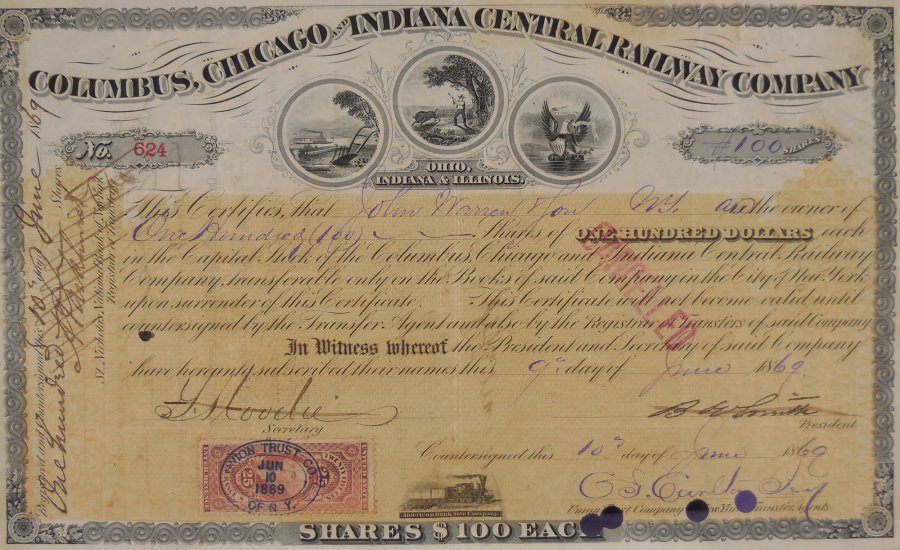 COLUMBUS, CHICAGO AND INDIANA CENTRAL RAILWAY COMPANY
No. 624
#100 SHARES
OHIO,
INDIANA & ILLINOIS.
This Certifies, that John Warren & Son N.Y. are the owner of
One Hundred (100) Shares of ONE HUNDRED DOLLARS each
in the Capital Stock of the Columbus, Chicago and Indiana Central Railway
Company, transferable only in the Books of said Company in the City of New York
upon surrender of this Certificate. This Certificate will not become valid until
countersigned by the Transfer Agent and also by the Registrar of Transfers of said Company
CANCELLED
In Witness whereof the President and Secretary of said Company
have hereunto subscribed their names this 9th day of June 1869
Secretary
B E Smith
President
Countersigned this 10th day of June 1869
Union Trust Company of New York Transfer Agents.
UNION TRUST CO.
JUN
10
1869
OF N.Y.
25 25
American Bank Note Company.
SHARES $100 EACH
Registered and Countersigned this 10th day of June 1869
One Hundred Shares
St. Nicholas National Bank of New York
Registrar of Transfers